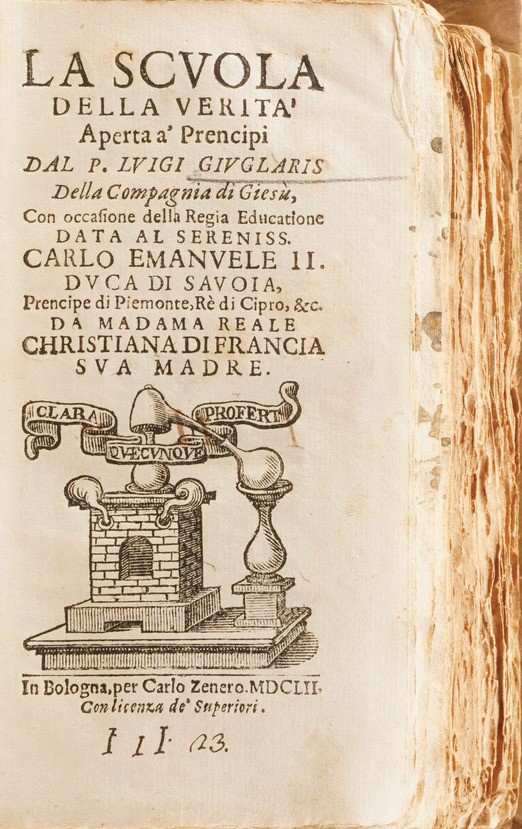 LA SCVOLA
DELLA VERITA'
Aperta a' Prencipi
DAL P. LVIGI GIVGLARIS
Della Compagnia di Giesù,
Con occaſione della Regia Educatione
DATA AL SERENISS.
CARLO EMANVELE II.
DVCA DI SAVOIA,
Prencipe di Piemonte, Rè di Cipro, &c.
DA MADAMA REALE
CHRISTIANA DI FRANCIA
SVA MADRE.
CLARA PROFERT
QVÆCVNQVE
In Bologna, per Carlo Zenero. MDCLII.
Con licenza de' Superiori.
III. 23.